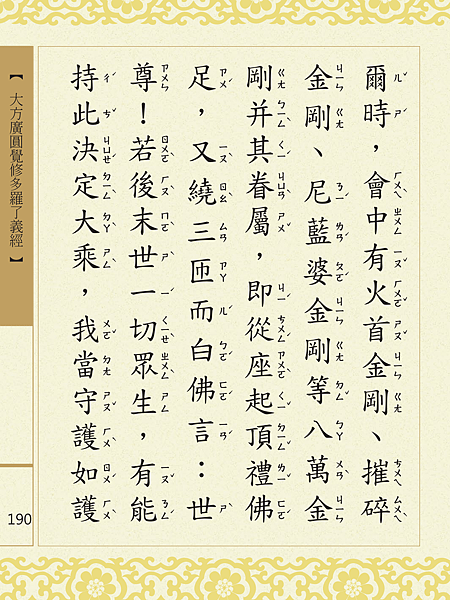 爾時，會中有火首金剛、摧碎
金剛、尼藍婆金剛等八萬金
剛并其眷屬，即從座起頂禮佛
足，又繞三匝而白佛言：世
尊！若後末世一切眾生，有能
持此決定大乘，我當守護如護
【大方廣圓覺修多羅了義經】
190